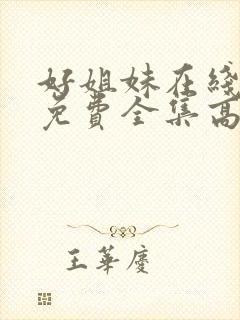 好姐妹在线
免费全集高
王华庆